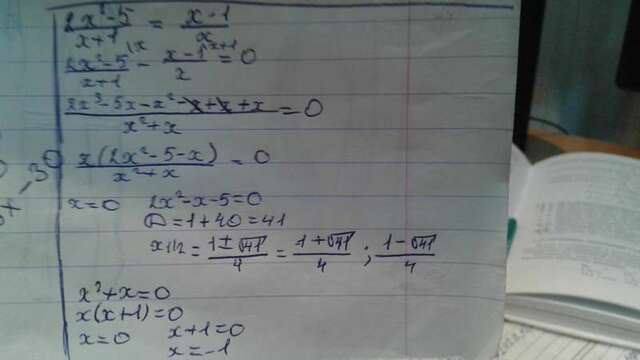 (2x²-5)/(x+1) = (x-1)/x
(2x²-5)/(x+1) - (x-1)/x = 0
(2x³-5x-x²-x+x+x)/(x²+x) = 0
x(2x²-5-x)/(x²+x) = 0
x=0 2x²-x-5=0
D=1+40=41
x₁/₂ = (1±√41)/4 = (1+√41)/4 ; (1-√41)/4
x²+x=0
x(x+1)=0
x=0 x+1=0
x=-1